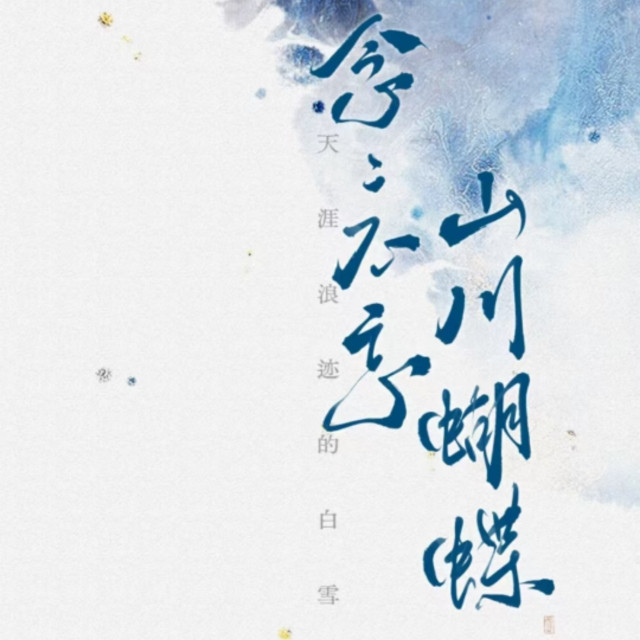 山川蝴蝶
念念不忘
天涯浪迹的白雪